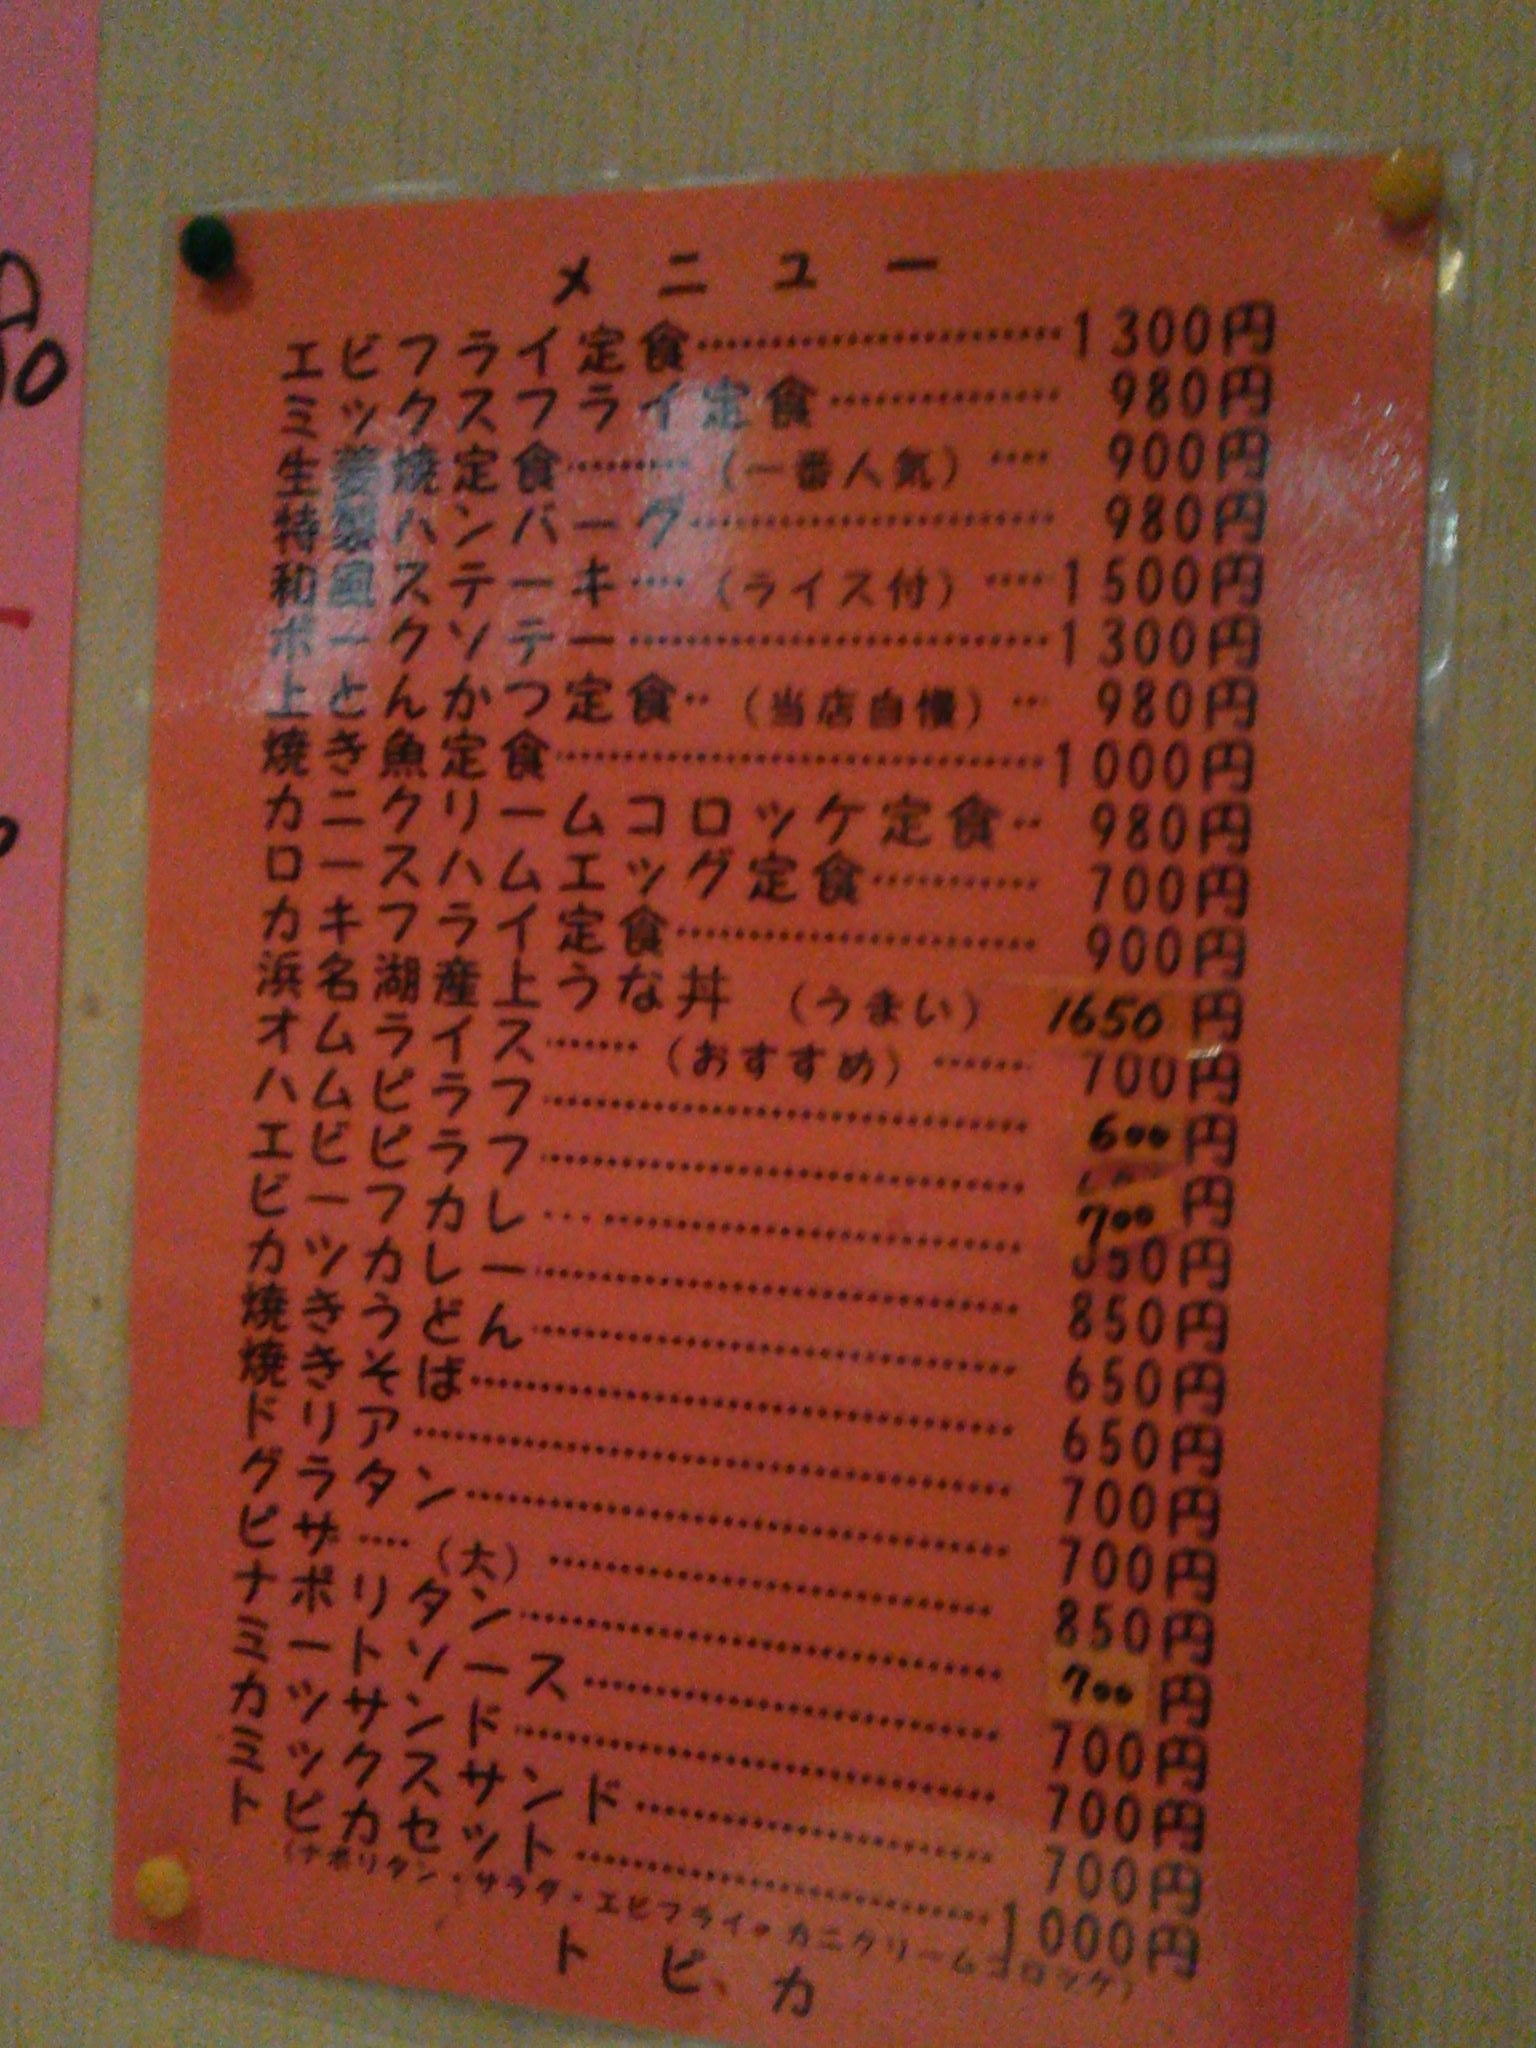 メニュー
エビフライ定食……………………1300円
ミックスフライ定食……………980円
生姜焼定食………(一番人気)…900円
特製ハンバーグ……………………980円
和風ステーキ…(ライス付)…1500円
ポークソテー………………………1300円
上とんかつ定食‥(当店自慢)…980円
焼き魚定食…………………………1000円
カニクリームコロッケ定食‥980円
ロースハムエッグ定食…………700円
カキフライ定食……………………900円
浜名湖産上うな丼 (うまい) 1650円
オムライス……(おすすめ)……700円
ハムピラフ…………………………600円
エビピラフ…………………………700円
ビーフカレ…………………………850円
カツカレー…………………………850円
焼きうどん…………………………650円
焼きそば……………………………650円
ドリア………………………………700円
グラタン……………………………700円
ピザ…(大)…………………………850円
ナポリタン…………………………700円
ミートソース………………………700円
カツサンド…………………………700円
ミックスサンド……………………700円
トピカセット………………………1000円
(ナポリタン・サラダ・エビフライ・カニクリームコロッケ)
トピカ